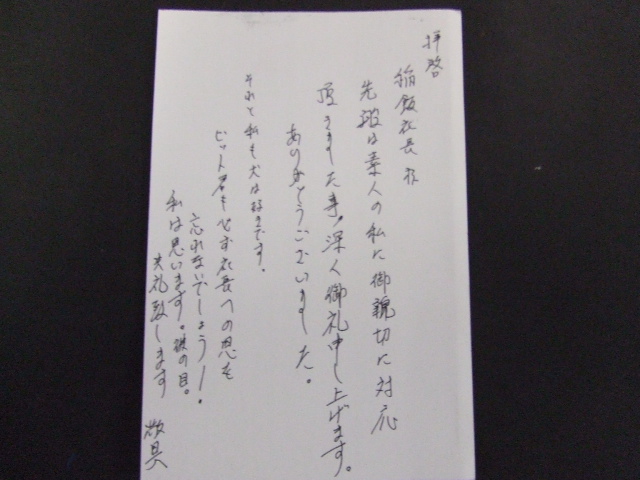 拝啓
稲飯社長様
先般は素人の私に御親切に対応
頂きました事、深く御礼申し上げます。
ありがとうございました。
それと私も犬は好きです。
ヒット君も必ず社長への恩を
忘れないでしょう！。
私は思います。彼の目。
失礼致します
敬具